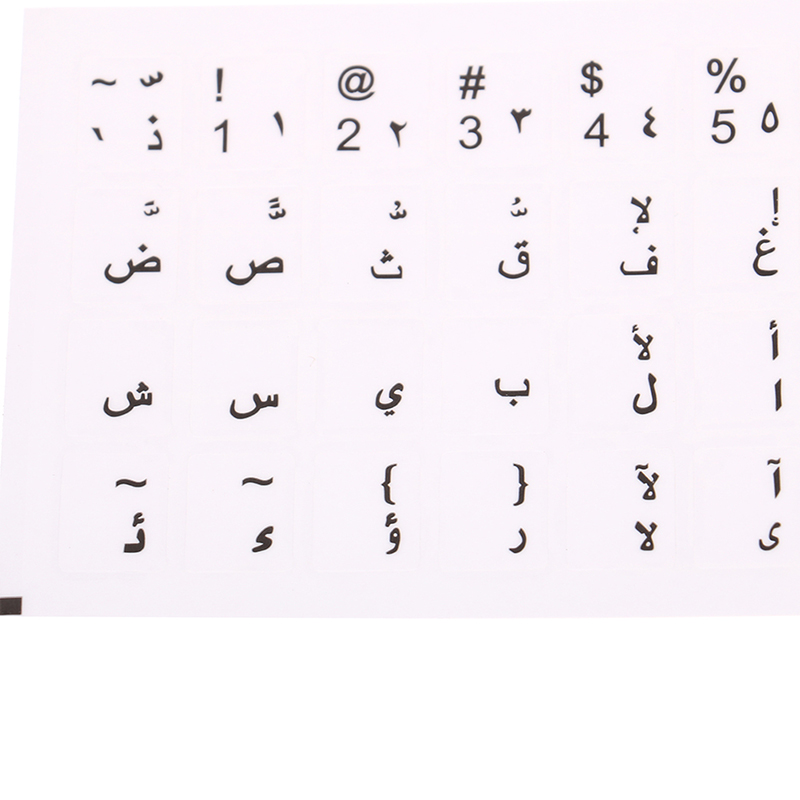 ~ ّ ! @ # $ %
` ذ 1 ١ 2 ٢ 3 ٣ 4 ٤ 5 ٥
َّ ًّ ُّ ٌّ لإ إ
ض ص ث ق ف غ
لأ أ
ش س ي ب ل ا
~ ~ { } لآ آ
ئ ء ؤ ر لا ى